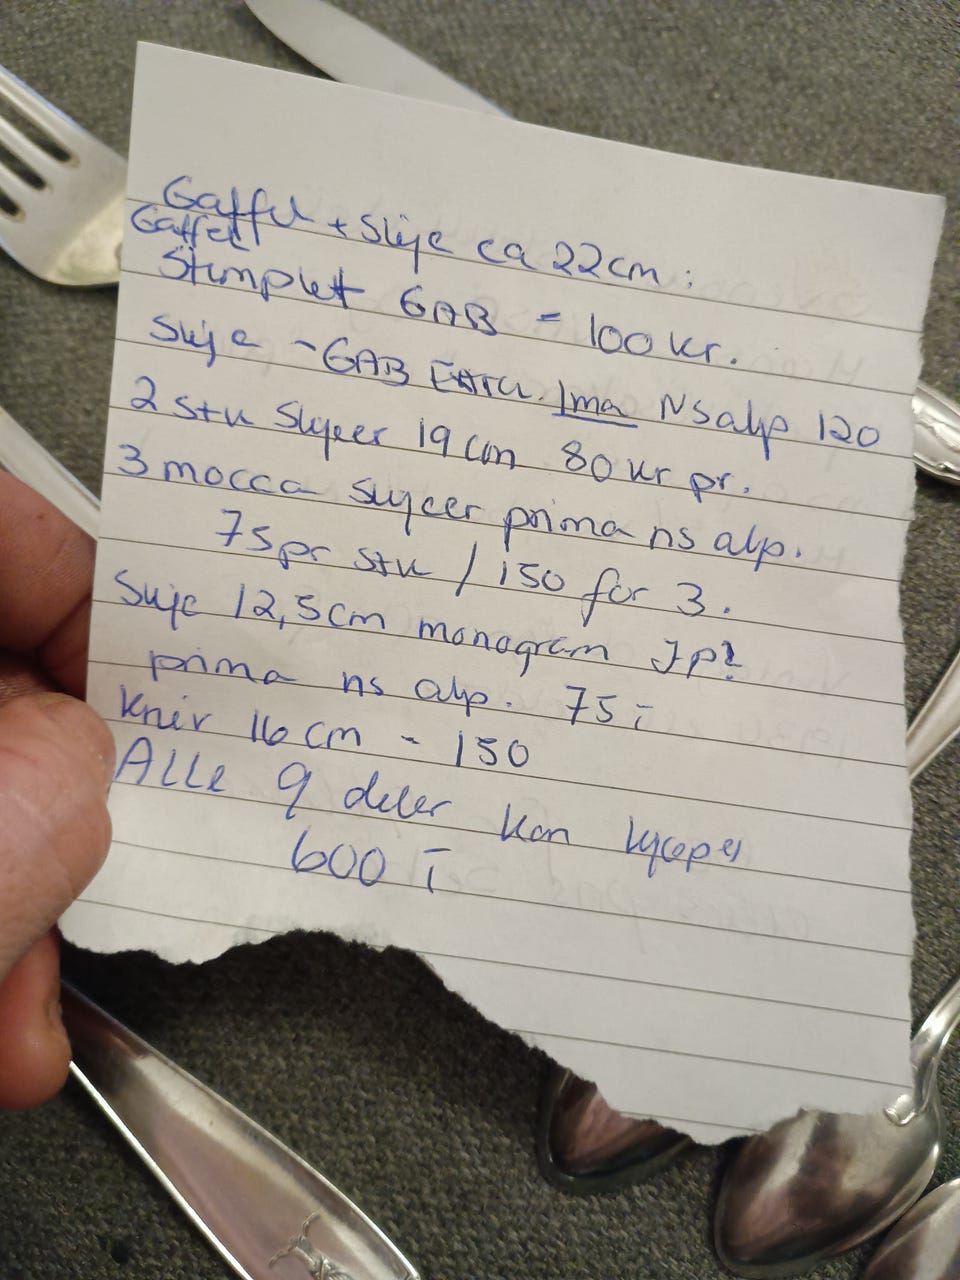 Gaffel + skje ca 22cm:
Gaffel
Stemplet GAB = 100 kr.
Skje - GAB Extra. Ima NS alp 120
2 stk Skjeer 19 cm 80 kr pr.
3 mocca skjeer prima ns alp.
75 pr stk / 150 for 3.
Skje 12,5cm monogram JP?
prima ns alp. 75 -
Kniv 16 cm - 150
Alle 9 deler kan kjøpes
600 -